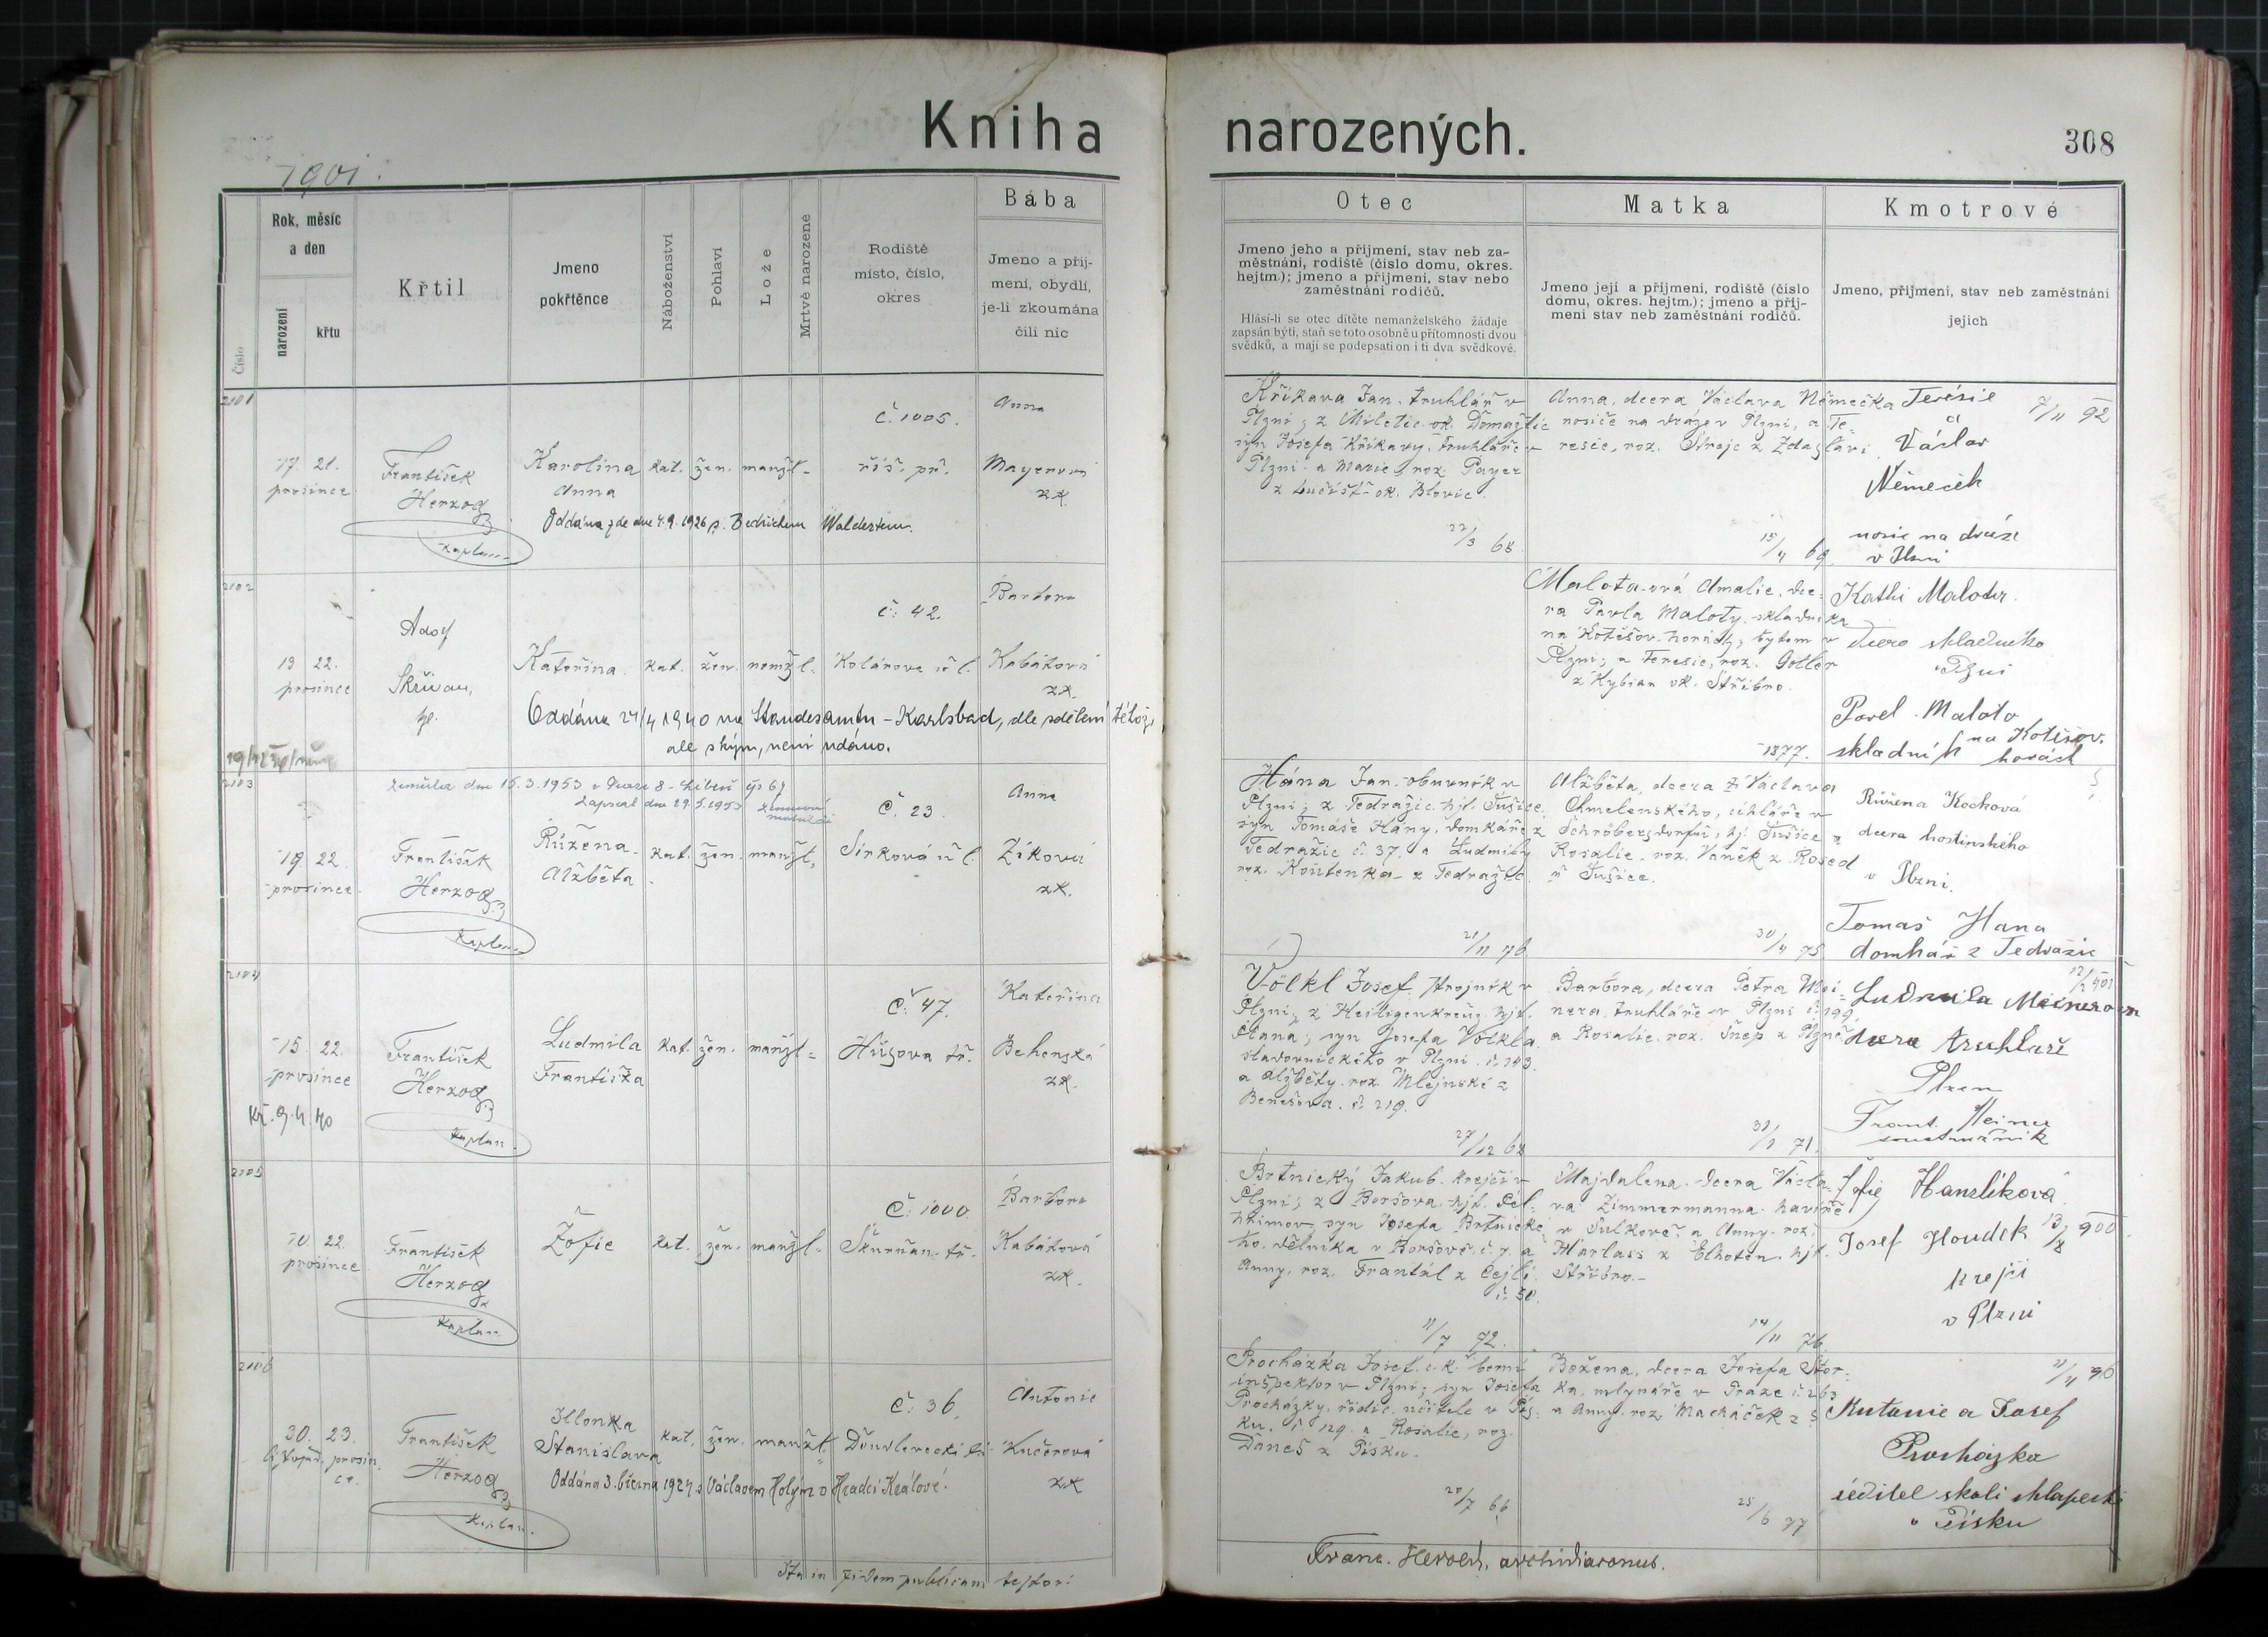 Kniha narozených.
308
1901.
Číslo
Rok, měsíc
a den
narození
křtu
Křtil
Jmeno
pokřtěnce
Náboženství
Pohlaví
Lože
Mrtvě narozené
Rodiště
místo, číslo,
okres
Bába
Jmeno a příj-
mení, obydlí,
je-li zkoumána
čili nic
Otec
Jmeno jeho a příjmení, stav neb za-
městnání, rodiště (číslo domu, okres.
hejtm.); jmeno a příjmení, stav nebo
zaměstnání rodičů.
Hlásí-li se otec dítěte nemanželského žádaje
zapsán býti, staň se toto osobně u přítomnosti dvou
svědků, a mají se podepsati on i ti dva svědkové.
Matka
Jmeno její a příjmení, rodiště (číslo
domu, okres. hejtm.); jmeno a příj-
mení stav neb zaměstnání rodičů.
Kmotrové
Jmeno, příjmení, stav neb zaměstnání
jejich
2101
17. 21.
prosince
František
Herzog
kaplan
Karolina
Anna
kat. žen. manžl-
č. 1005.
říš. př.
Anna
Mayerová
zk.
Oddána zde dne 4.9.1926 s Bedřichem Waldertem.
Křikava Jan, truhlář v
Plzni; z Miletic ok. Domažlic
syn Josefa Křikavy, truhláře v
Plzni a Marie, roz. Payer
z Lučišť ok. Blovic.
22/3 68.
Anna, dcera Václava Němečka
nosiče na dráze v Plzni, a Te-
resie, roz. Stroje z Zdaslavi.
15/4 69.
Terésie 7/11 92
a
Václav
Němeček
nosič na dráze
v Plzni
2102
13 22.
prosince
Adolf
Skřivan,
Kateřina.
kat. žen. nemžl.
č. 42.
Kolárova ul.
Barbora
Kabátová
zk.
Oddána 24/4 1940 na Standesamtu - Karlsbad, dle sdělení téhož,
ale s kým, není udáno.
Malota-ová Amalie, dce-
ra Pavla Maloty, skladníka
na Kotěšov. horách, bytem v
Plzni; a Teresie, roz. Goller
z Kybian ok. Stříbro.
1877.
Kathi Malota.
dcera skladníka
v Plzni
Pavel Malota
skladník na Kotěšov.
horách
2103
zemřela dne 15.3.1953 v Praze 8 - Libeň
zapsal dne 29.5.1953
19 22.
prosince
František
Herzog
Kaplan
Růžena
Alžběta
kat. žen. manžl,
č. 23.
Sirková ul.
Anna
Zíková
zk.
Hána Jan, obuvník v
Plzni; z Tedražic hjt. Sušice,
syn Tomáše Hány, domkáře z
Tedražic č. 37. a Ludmily
roz. Kortenka z Tedražic.
21/11 76
Alžběta, dcera Václava
Chmelenského, cihláře v
Schröbersdorfu, hj. Sušice a
Rosalie, roz. Vaněk z Rosed
Sušice.
30/4 75
Růžena Kočková
dcera hostinského
v Plzni.
Tomaš Hana
domkář z Tedražic
2104
15. 22.
prosince
Kř. 9.4.40
František
Herzog
Kaplan.
Ludmila
Františka
kat. žen. manžl-
č. 47.
Husova tř.
Kateřina
Behenská
zk.
Völkl Josef, strojník v
Plzni; z Heiligenkreuz hjt.
Plana; syn Josefa Völkla
sládovnického v Plzni č. 143.
a Alžběty roz. Mlejnské z
Benešova č. 219.
27/12 68
Barbora, dcera Petra Mei-
nera, truhláře v Plzni č. 199,
a Rosalie, roz. Šnep z Plzně.
31/1 71.
12/2 901
Ludmila Meinerova
dcera truhláře
Plzen
Frant. Meiner
soustružník
2105
10 22.
prosince
František
Herzog
Kaplan
Žofie
kat. žen. manžl-
č. 1000
Skurňan. tř.
Barbora
Kabátová
zk.
Brtnický Jakub, krejčí v
Plzni; z Boršova, hjt. Pel-
hřimov, syn Josefa Brtnické-
ho, dělníka v Boršově č. 7. a
Anny, roz. Frantál z Cejli.
č. 50.
11/7 72.
Majdalena, dcera Václa-
va Zimmermanna, havíře
v Sulkově a Anny, roz.
Harlass z Elhoten, hjt.
Stříbro.
14/11 76.
Žofie Hanzlíková
Josef Houdek 13/8 900
krejčí
v Plzni
2106
30. 23.
listopad. prosin-
ce.
František
Herzog
Kaplan.
Illonka
Stanislava
kat. žen. manžl
č. 36.
Antonie
Kučerová
zk
Oddána 3. března 1924 s Václavem Holým v Hradci Králové.
Procházka Josef, c.k. berní
inšpektor v Plzni; syn Josefa
Procházky, řídíc. učitele v Pís-
ku. č. 129. a Rosalie, roz.
Daneš z Písku.
20/7 66
Božena, dcera Josefa Štor-
ka, mlynáře v Praze č. 263
a Anny, roz. Macháček z
25/6 77
11/4 90
Antonie a Josef
Procházka
ředitel školi chlapecké
v Písku
Ita in fidem publicam testor:
Franc. Herold, archidiaconus.